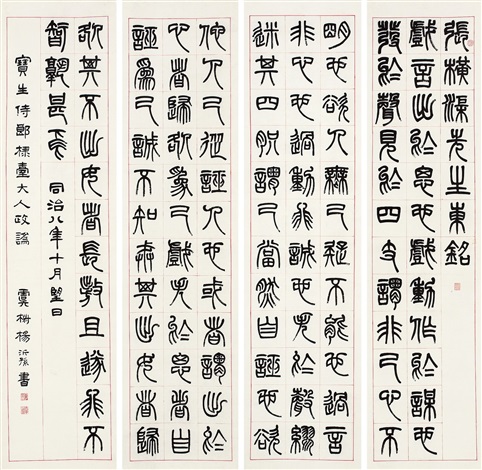 張橫渠先生東銘
戲言出於思也戲動作於謀也
發於聲見於四支謂非己心不
明也欲人無己疑不能也過言
非心也過動非誠也失於聲繆
迷其四體謂己當然自誣也欲
他人己從誣人也或者謂出於
心者歸咎為己戲失於思者自
誣為己誠不知戒其出女者歸
咎其不出女者長敖且遂非不
智孰甚焉 同治八年十月朢日
寶生侍郎臺大人政 虞楊沂孫書